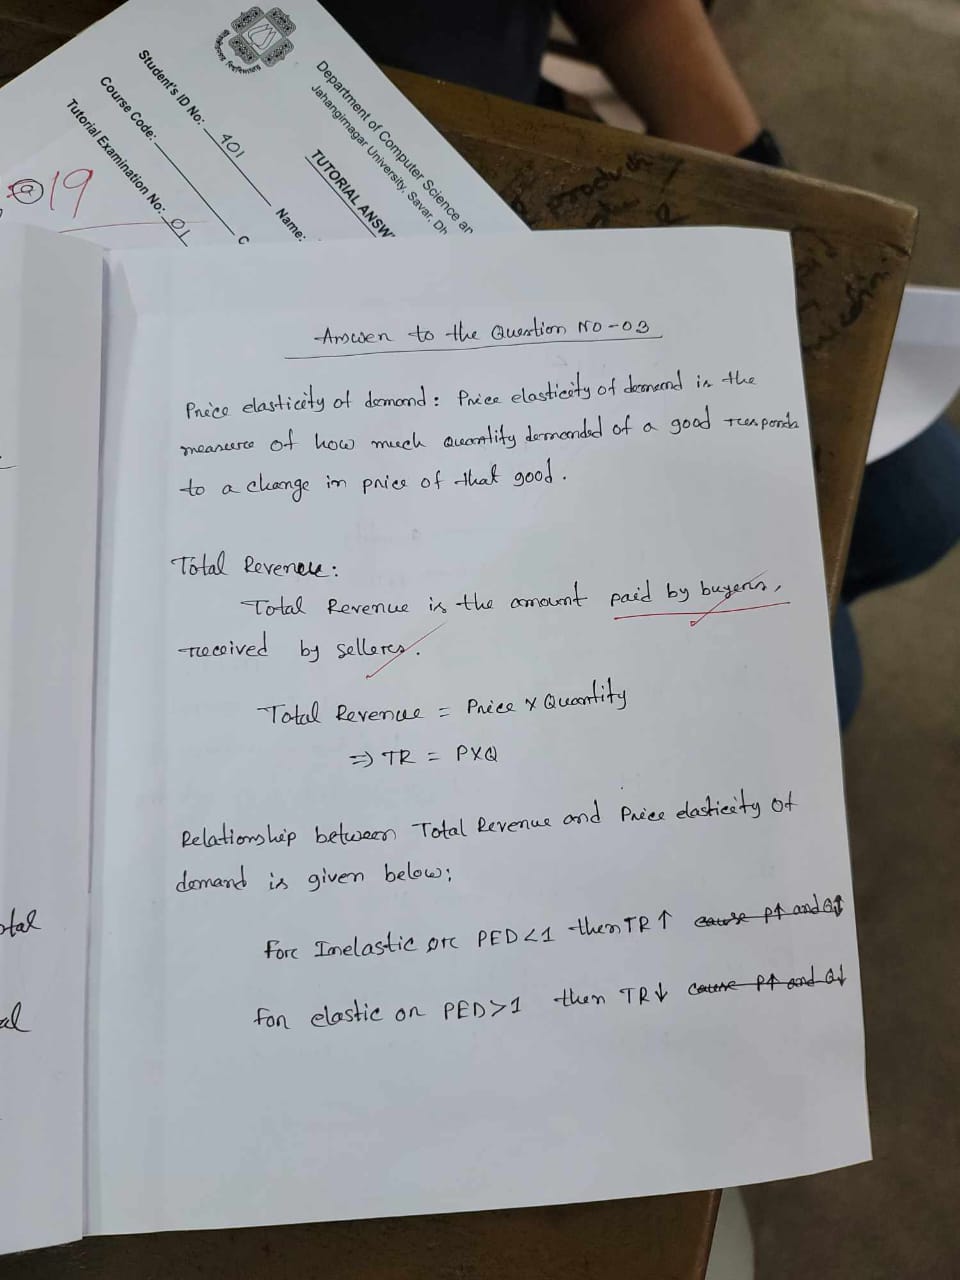 Department of Computer Science an
Jahangirnagar University, Savar, Dh
TUTORIAL ANSW
Student's ID No: 401
Name:
Course Code:
Tutorial Examination No: 01
19
Answer to the Question No-03
Price elasticity of demand: Price elasticity of demand is the
measure of how much quantity demanded of a good responds
to a change in price of that good.
Total Revenue:
Total Revenue is the amount paid by buyers,
received by sellers.
Total Revenue = Price × Quantity
⇒ TR = P×Q
Relationship between Total Revenue and Price elasticity of
demand is given below:
For Inelastic or PED<1 then TR↑ cause P↑ and Q↕
For elastic or PED>1 then TR↓ cause P↑ and Q↓
otal
al